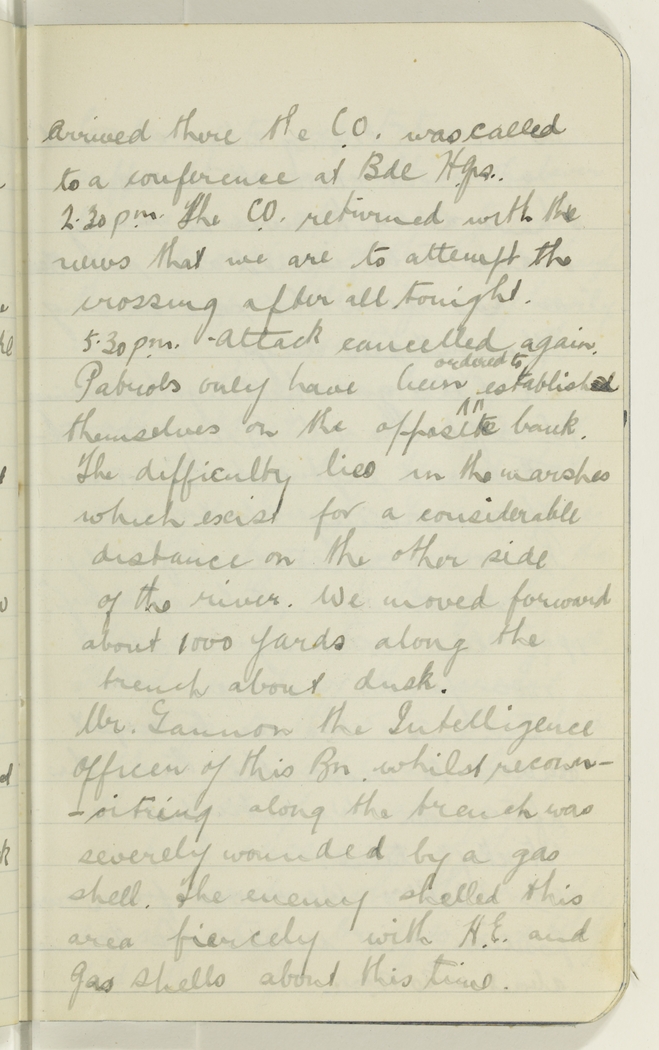 arrived there the C.O. was called
to a conference at Bde Hqs..
2.30 p.m. The C.O. returned with the
news that we are to attempt the
crossing after all tonight.
5.30 p.m. Attack cancelled again.
ordered to
Patrols only have been established
themselves on the opposite bank.
The difficulty lies in the marshes
which exist for a considerable
distance on the other side
of the river. We moved forward
about 1000 yards along the
trench about dusk.
Mr. Gannon the Intelligence
Officer of this Bn. whilst reconn-
-oitring along the trench was
severely wounded by a gas
shell. The enemy shelled this
area fiercely with H.E. and
gas shells about this time.